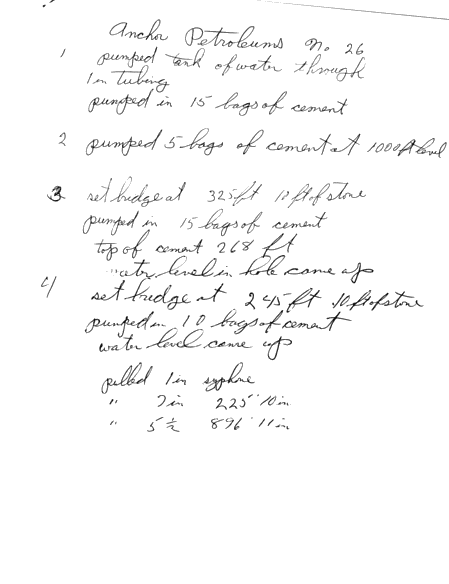 Anchor Petroleums No. 26
1 pumped tank of water through
1 in tubing
pumped in 15 bags of cement
2 pumped 5 bags of cement at 1000 ft level
3 set bridge at 325 ft 10 ft of stone
pumped in 15 bags of cement
top of cement 268 ft
water level in hole came up
4/ set bridge at 245 ft 10 ft of stone
pumped in 10 bags of cement
water level came up
pulled 1 in syphone
" 7 in 225' 10 in
" 5 1/2 896' 11 in